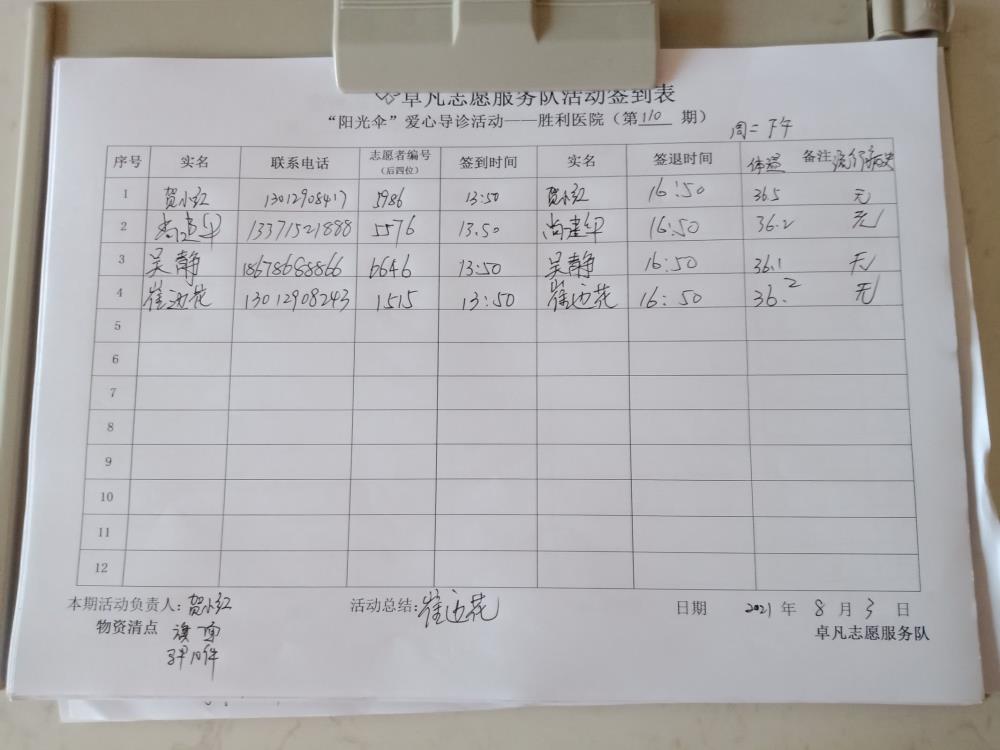 卓凡志愿服务队活动签到表
“阳光伞”爱心导诊活动——胜利医院（第110期）
周二下午
序号 实名 联系电话 志愿者编号（后四位） 签到时间 实名 签退时间 体温 备注 流行病史
1 贺小红 13012908417 5986 13:50 贺小红 16:50 36.5 无
2 尚建华 13371521888 5576 13.50 尚建华 16:50 36.2 无
3 吴静 18678688866 6646 13:50 吴静 16:50 36.1 无
4 崔迎花 13012908243 1515 13:50 崔迎花 16:50 36.2 无
5
6
7
8
9
10
11
12
本期活动负责人：贺小红 活动总结：崔迎花 日期 2021年8月3日
物资清点 卓凡志愿服务队